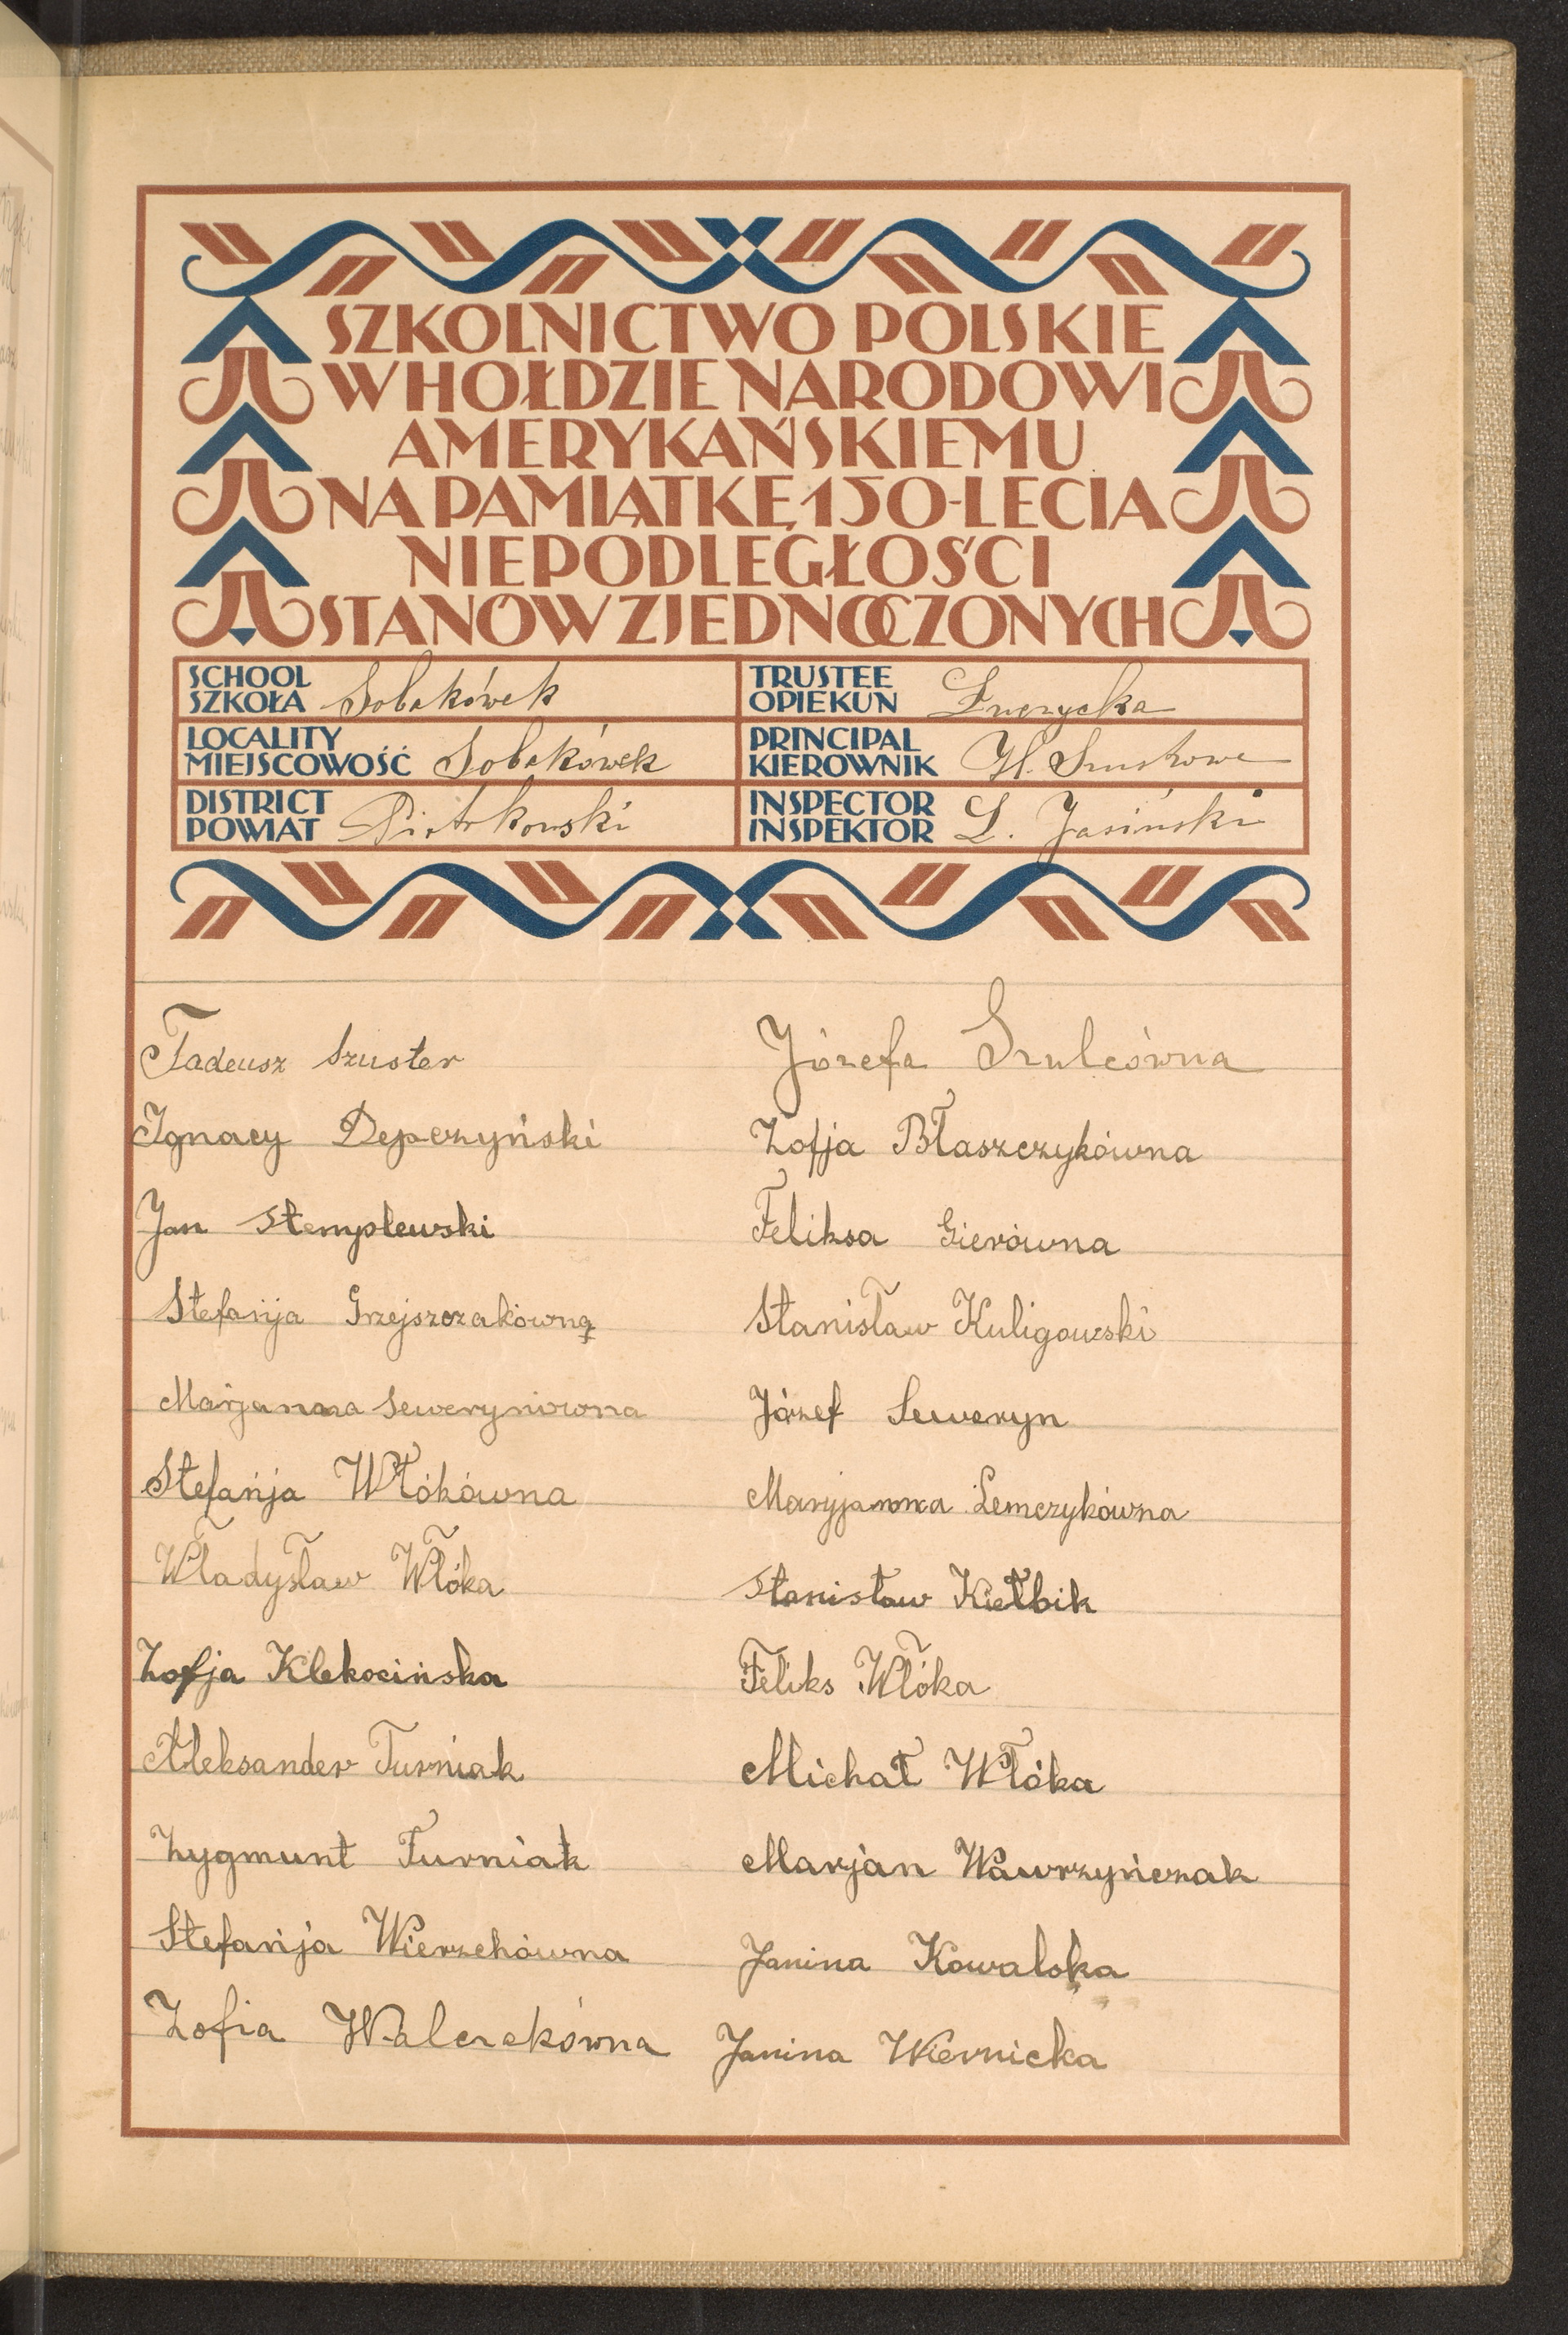 SZKOLNICTWO POLSKIE
W HOŁDZIE NARODOWI
AMERYKAŃSKIEMU
NA PAMIĄTKĘ 150-LECIA
NIEPODLEGŁOŚCI
STANÓW ZJEDNOCZONYCH
SCHOOL
SZKOŁA Sobakówek
TRUSTEE
OPIEKUN
LOCALITY
MIEJSCOWOŚĆ Sobakówek
PRINCIPAL
KIEROWNIK
DISTRICT
POWIAT Piotrkowski
INSPECTOR
INSPEKTOR L. Jasiński
Tadeusz Szuster
Ignacy Depczyński
Jan Stemplewski
Stefańja Grzejszczakówną
Marjanna Sewerynówna
Stefańja Włókówna
Władysław Włóka
Zofja Klekocińska
Aleksander Turniak
Zygmunt Turniak
Stefańja Wierzchówna
Zofia Walczakówna
Józefa Szulcówna
Zofja Błaszczykówna
Feliksa Gierówna
Stanisław Kuligowski
Józef Seweryn
Maryjanna Lemczykówna
Stanisław Kiełbik
Feliks Włóka
Michał Włóka
Marjan Wawrzyńczak
Janina Kowalska
Janina Wiernicka